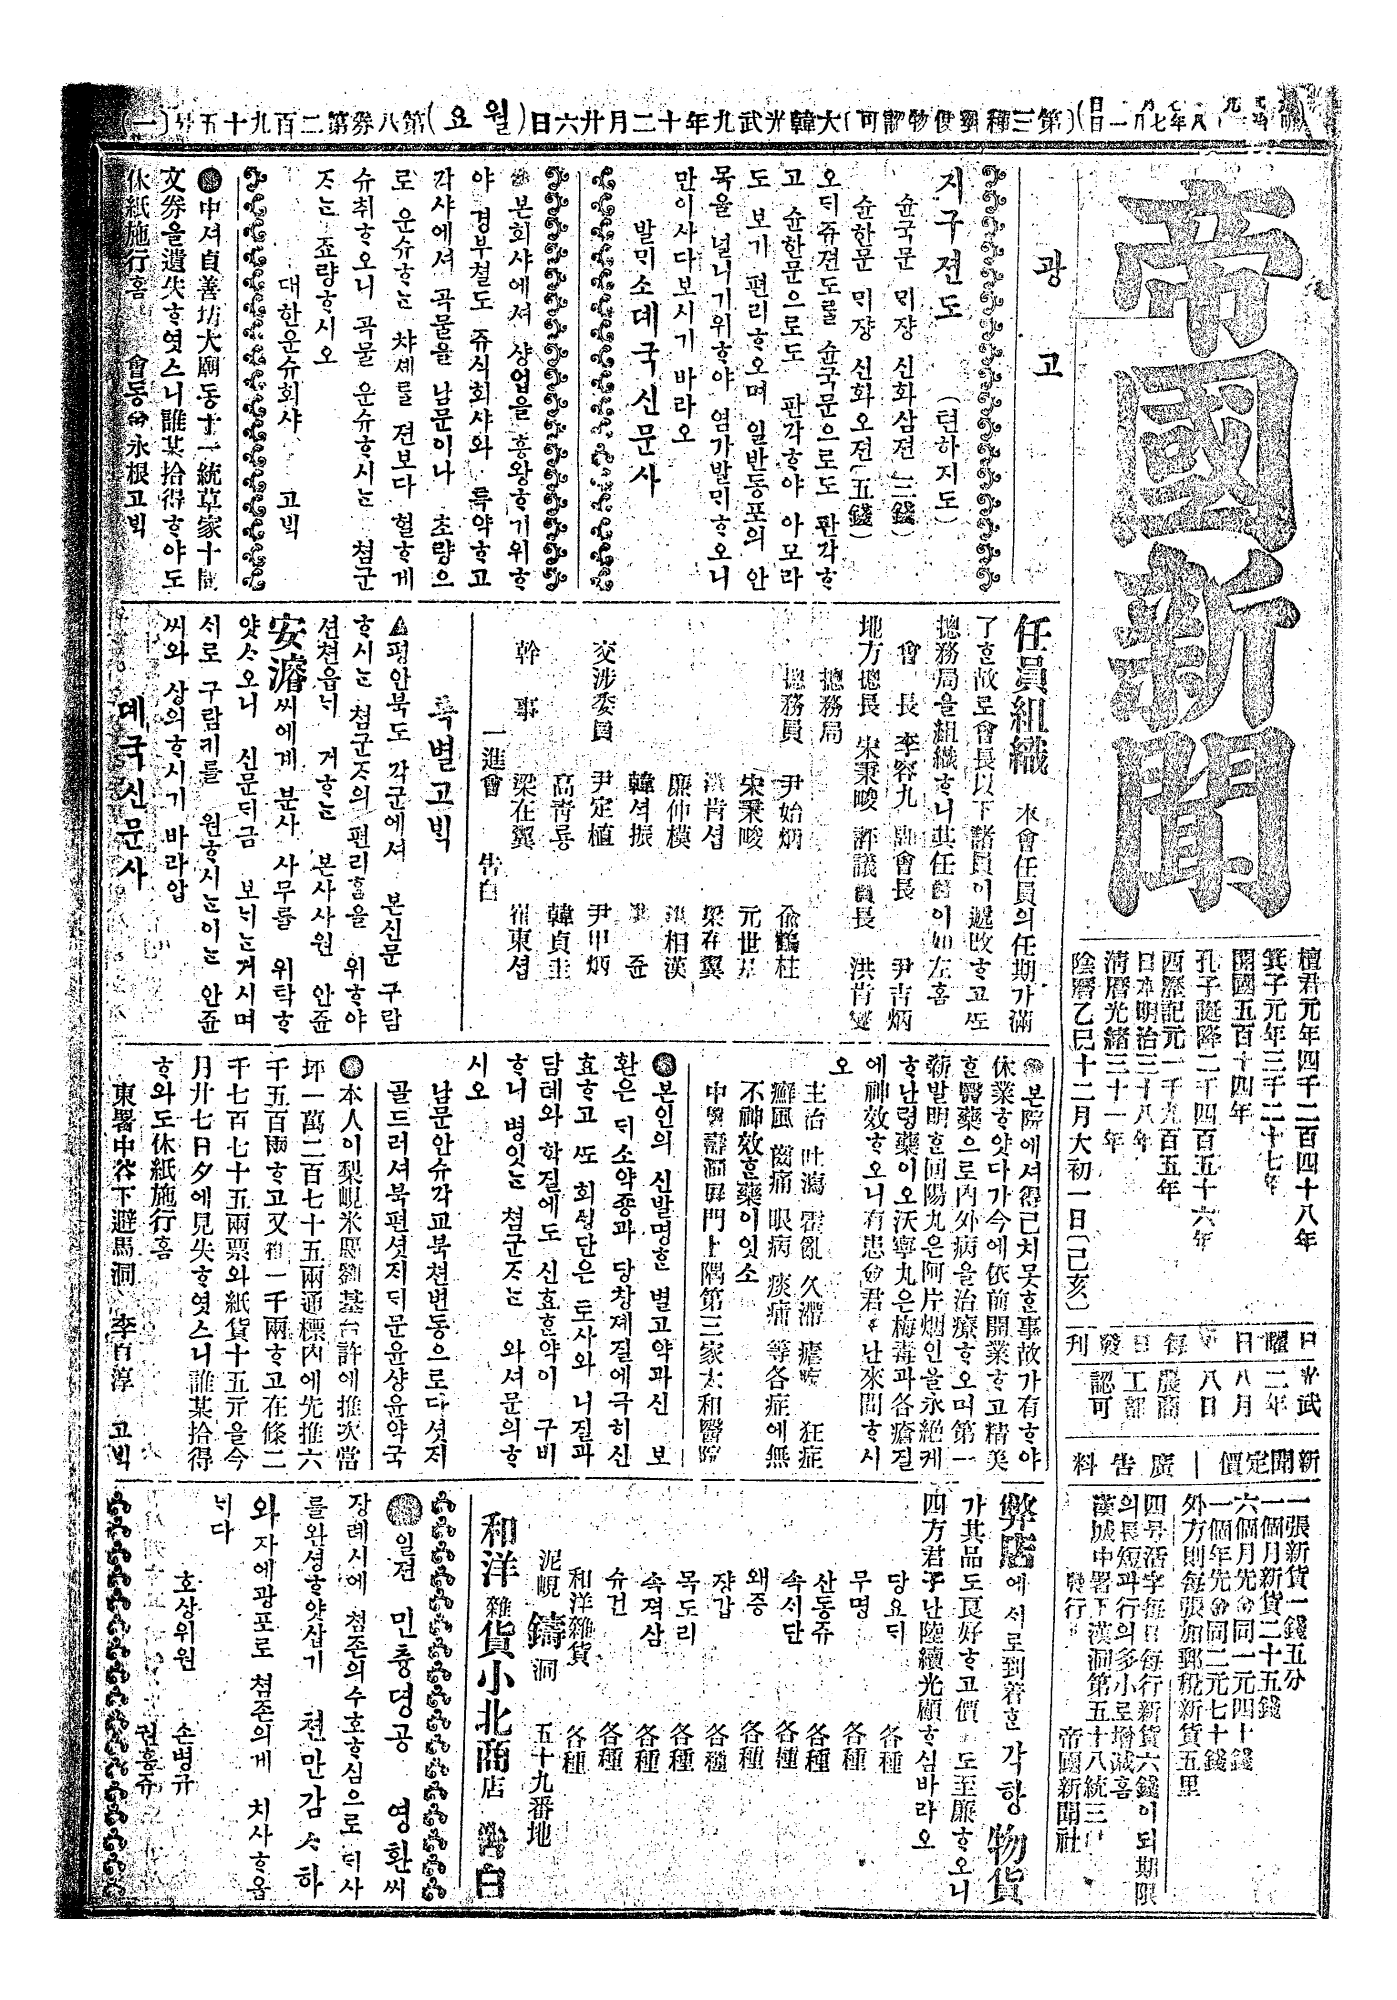 (一) 第八券第二百九十五号 (월요) 大韓光武九年十二月廿六日 (第三種郵便物認可)
帝國新聞
檀君元年四千二百四十八年
箕子元年三千二十七年
開國五百十四年
孔子誕降二千四百五十六年
西歷記元一千九百五年
日本明治三十八年
清曆光緒三十一年
陰曆乙巳十二月大初一日(己亥)
每日發刊
光武二年八月八日
農商工部認可
新聞定價 | 廣告料
一張新貨一錢五分
一個月新貨二十五錢
六個月先金同一元四十錢
一個年先金同二元七十錢
外方則每張加郵稅新貨五里
四号活字每日每行新貨六錢이되期限
의長短과行의多小로增減홈
漢城中署下漢洞第五十八統三戶
發行
帝國新聞社
광고
지구젼도 (텬하지도)
슌국문 믹쟝 신화삼젼(三錢)
슌한문 믹쟝 신화오젼(五錢)
오딕쥬젼도를 슌국문으로도 판각ᄒ
고 슌한문으로도 판각ᄒ야 아모라
도 보기 편리ᄒ오며 일반동포의 안
목을 널니기위ᄒ야 염가발믹ᄒ오니
만이사다보시기 바라오
발믹소 뎨국신문사
본회샤에셔 샹업을 흥왕ᄒ기위ᄒ
야 경부철도 쥬식회샤와 특약ᄒ고
각샤에셔 곡물을 남문이나 초량으
로 운슈ᄒᄂ 챠셰를 젼보다 헐ᄒ게
슈취ᄒ오니 곡물 운슈ᄒ시ᄂ 쳠군
ᄌᄂ 죠량ᄒ시오
대한운슈회샤 고빅
中셔貞善坊大廟동十一統草家十間
文券을遺失ᄒ엿스니誰某拾得ᄒ야도
休紙施行홈 會동 永根고빅
任員組織 本會任員의任期가滿
了ᄒ故로會長以下諸員이遞改ᄒ고ᄯ
摠務局을組織ᄒ니其任員이如左홈
會長 李容九 副會長 尹吉炳
地方總長 宋秉畯 評議員長 洪肯燮
摠務局
摠務員 尹始炳 兪鶴柱
宋秉畯 元世
洪肯섭 梁在翼
廉仲模 相漢
韓셕振 쥰
交涉委員 尹定植 尹甲炳
高靑룡 韓貞圭
幹事 梁在翼 崔東셥
一進會 告白
특별고빅
평안북도 각군에셔 본신문 구람
ᄒ시ᄂ 쳠군ᄌ의 편리홈을 위ᄒ야
션쳔읍닉 거ᄒᄂ 본사사원 안쥰
安濬씨에게 분사 사무를 위탁ᄒ
얏ᄉ오니 신문딕금 보닉ᄂ거시며
시로 구람키를 원ᄒ시ᄂ이ᄂ 안쥰
씨와 상의ᄒ시기 바라압
뎨국신문사
본院에셔得已치못ᄒ事故가有ᄒ야
休業ᄒ얏다가今에依前開業ᄒ고精美
ᄒ醫藥으로內外病을治療ᄒ오며第一
新發明ᄒ回陽丸은阿片烟인을永絕케
ᄒ난령藥이오沃寧丸은梅毒과各瘡질
에神效ᄒ오니有患僉君ᄌ난來問ᄒ시
오
主治 吐瀉 霍亂 久滯 瘧疾 狂症
癬風 齒痛 眼病 痰痛 等各症에無
不神效ᄒ藥이잇소
中署壽洞屛門上隅第三家太和醫院
본인의 신발명ᄒ 별고약과신 보
환은 딕소약종과 당창졔질에극히신
효ᄒ고 ᄯ 회싱단은 토사와 니질과
담례와 학질에도 신효ᄒ약이 구비
ᄒ니 병잇ᄂ 쳠군ᄌᄂ 와셔문의ᄒ
시오
남문안슈각교북쳔변동으로다섯지
골드러셔북편셧지딕문윤샹윤약국
本人이梨峴米廛劉基台許에推次當
坪一萬二百七十五兩通標內에先推六
千五百兩ᄒ고又 一千兩ᄒ고在條二
千七百七十五兩票와紙貨十五元을今
月廿七日夕에見失ᄒ엿스니誰某拾得
ᄒ와도休紙施行홈
東署中谷下避馬洞 李百淳 고빅
弊店에 시로到着ᄒ 각항 物貨
가其品도良好ᄒ고價 도至廉ᄒ오니
四方君子난陸續光顧ᄒ심바라오
당요딕 各種
무명 各種
산동쥬 各種
속시단 各種
왜증 各種
쟝갑 各種
목도리 各種
속젹삼 各種
슈건 各種
和洋雜貨 各種
泥峴 鑄洞 五十九番地
和洋雜貨小北商店 告白
일젼 민츙뎡공 영환씨
쟝례시에 쳠존의수호ᄒ심으로 딕사
를완셩ᄒ얏삽기 쳔만감ᄉ하
와 자에광포로 쳠존의게 치사ᄒ옴
닉다
호상위원 손병규
권흥쥬